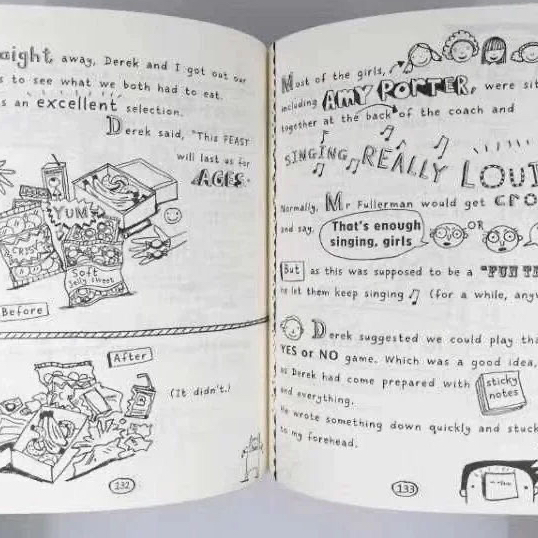 aight away, Derek and I got out our
s to see what we both had to eat.
s an excellent selection.
Derek said, "This FEAST
will last us for
AGES.
YUM
CRISPS
Soft
Jelly sweets
Before
After
(It didn't.)
132
Most of the girls,
including AMY PORTER, were sit
together at the back of the coach and
SINGING REALLY LOU
Normally, Mr Fullerman would get CRO
and say,
That's enough
singing, girls
OR
But as this was supposed to be a "FUN
he let them keep singing (for a while, anyw
Derek suggested we could play the
YES or NO game. Which was a good idea,
as Derek had come prepared with
sticky
notes
and everything.
He wrote something down quickly and stuck
to my forehead.
133